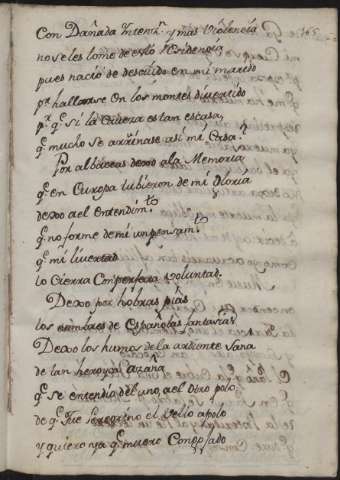 Con Dañada Yntenzn. y mas Violencia 165
no seles tome de esto Residencia
pues nacio de descuido en mi marido
pr. hallarse en los montes divertido
pr. qe. si la es tan escasa,
qe. mucho se arruinase asi mi Casa?
Por albaceas dexo ala Memoria
qe. en Europa tubieron de mi Gloria
dexo ael entendimto.
qe. no forme de mi un pensamto.
qe. mi livertad
lo Cierra Con perfecta voluntad.
Dexo por hobras pias
los nombres de Españolas fantasias
Dexo los humos de la ardiente Vana
de tan heroyca azaña
qe. se entendia del uno, ael otro polo.
de qe. fue Peregrino el bello apolo
y quiero ya qe. muero Con enfado